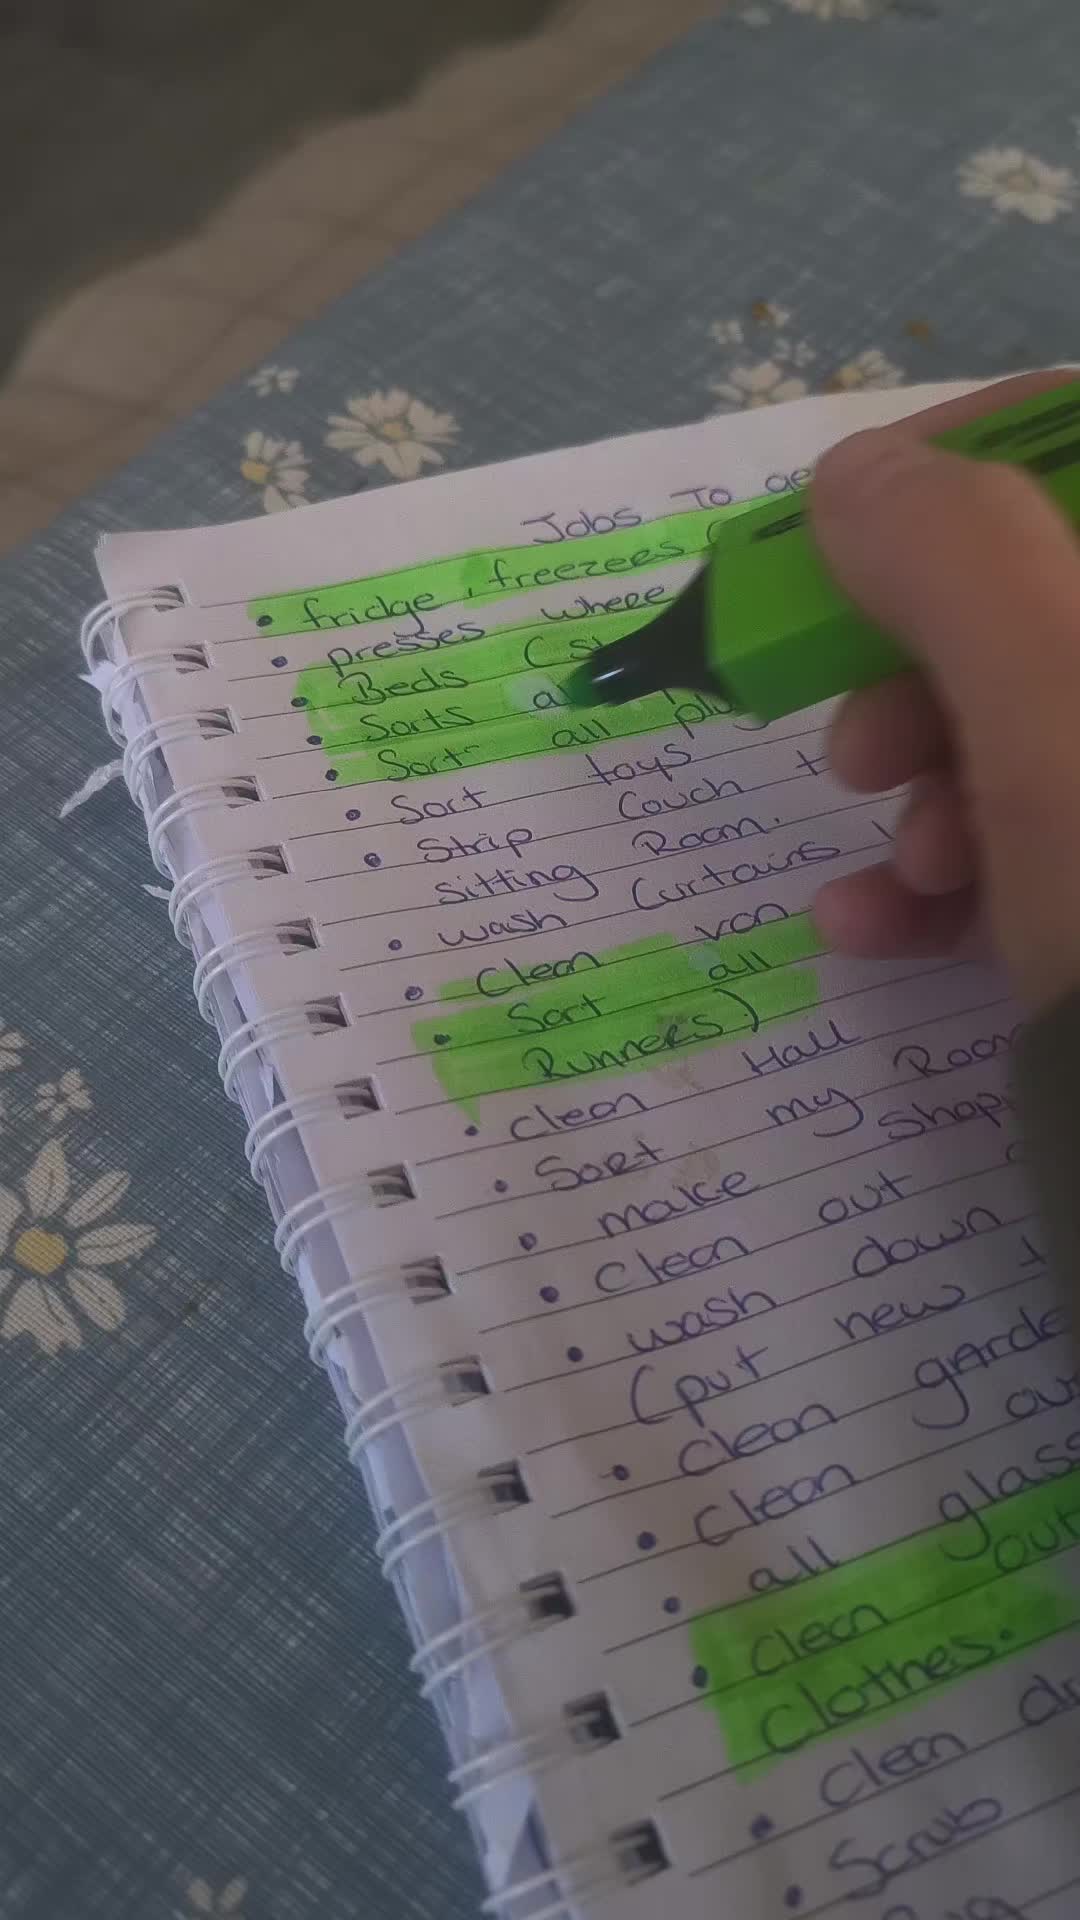 Jobs To ge
• fridge, freezees (
• presses where
• Beds (St
• Sorts a
• Sort all plu
• Sort toys
• Strip Couch +
sitting Room.
• wash Curtains
• Clean van
• Sort all
Runners)
• clean Hall
• Sort my Room
• make Shop
• Clean out
• wash down
(put new
• clean garde
• Clean ou
• all glass
• Clean out
Clothes.
• Clean dr
• Scrub